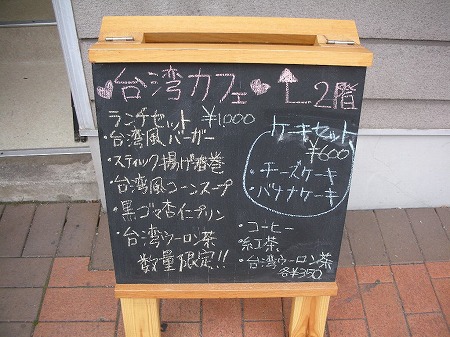 ♥台湾カフェ♥ ↑2階
ランチセット ¥1,000
・台湾風バーガー
・スティック揚げ春巻
・台湾風コーンスープ
・黒ゴマ杏仁プリン
・台湾ウーロン茶
数量限定!!
ケーキセット
¥600
・チーズケーキ
・バナナケーキ
・コーヒー
紅茶
・台湾ウーロン茶
各¥350